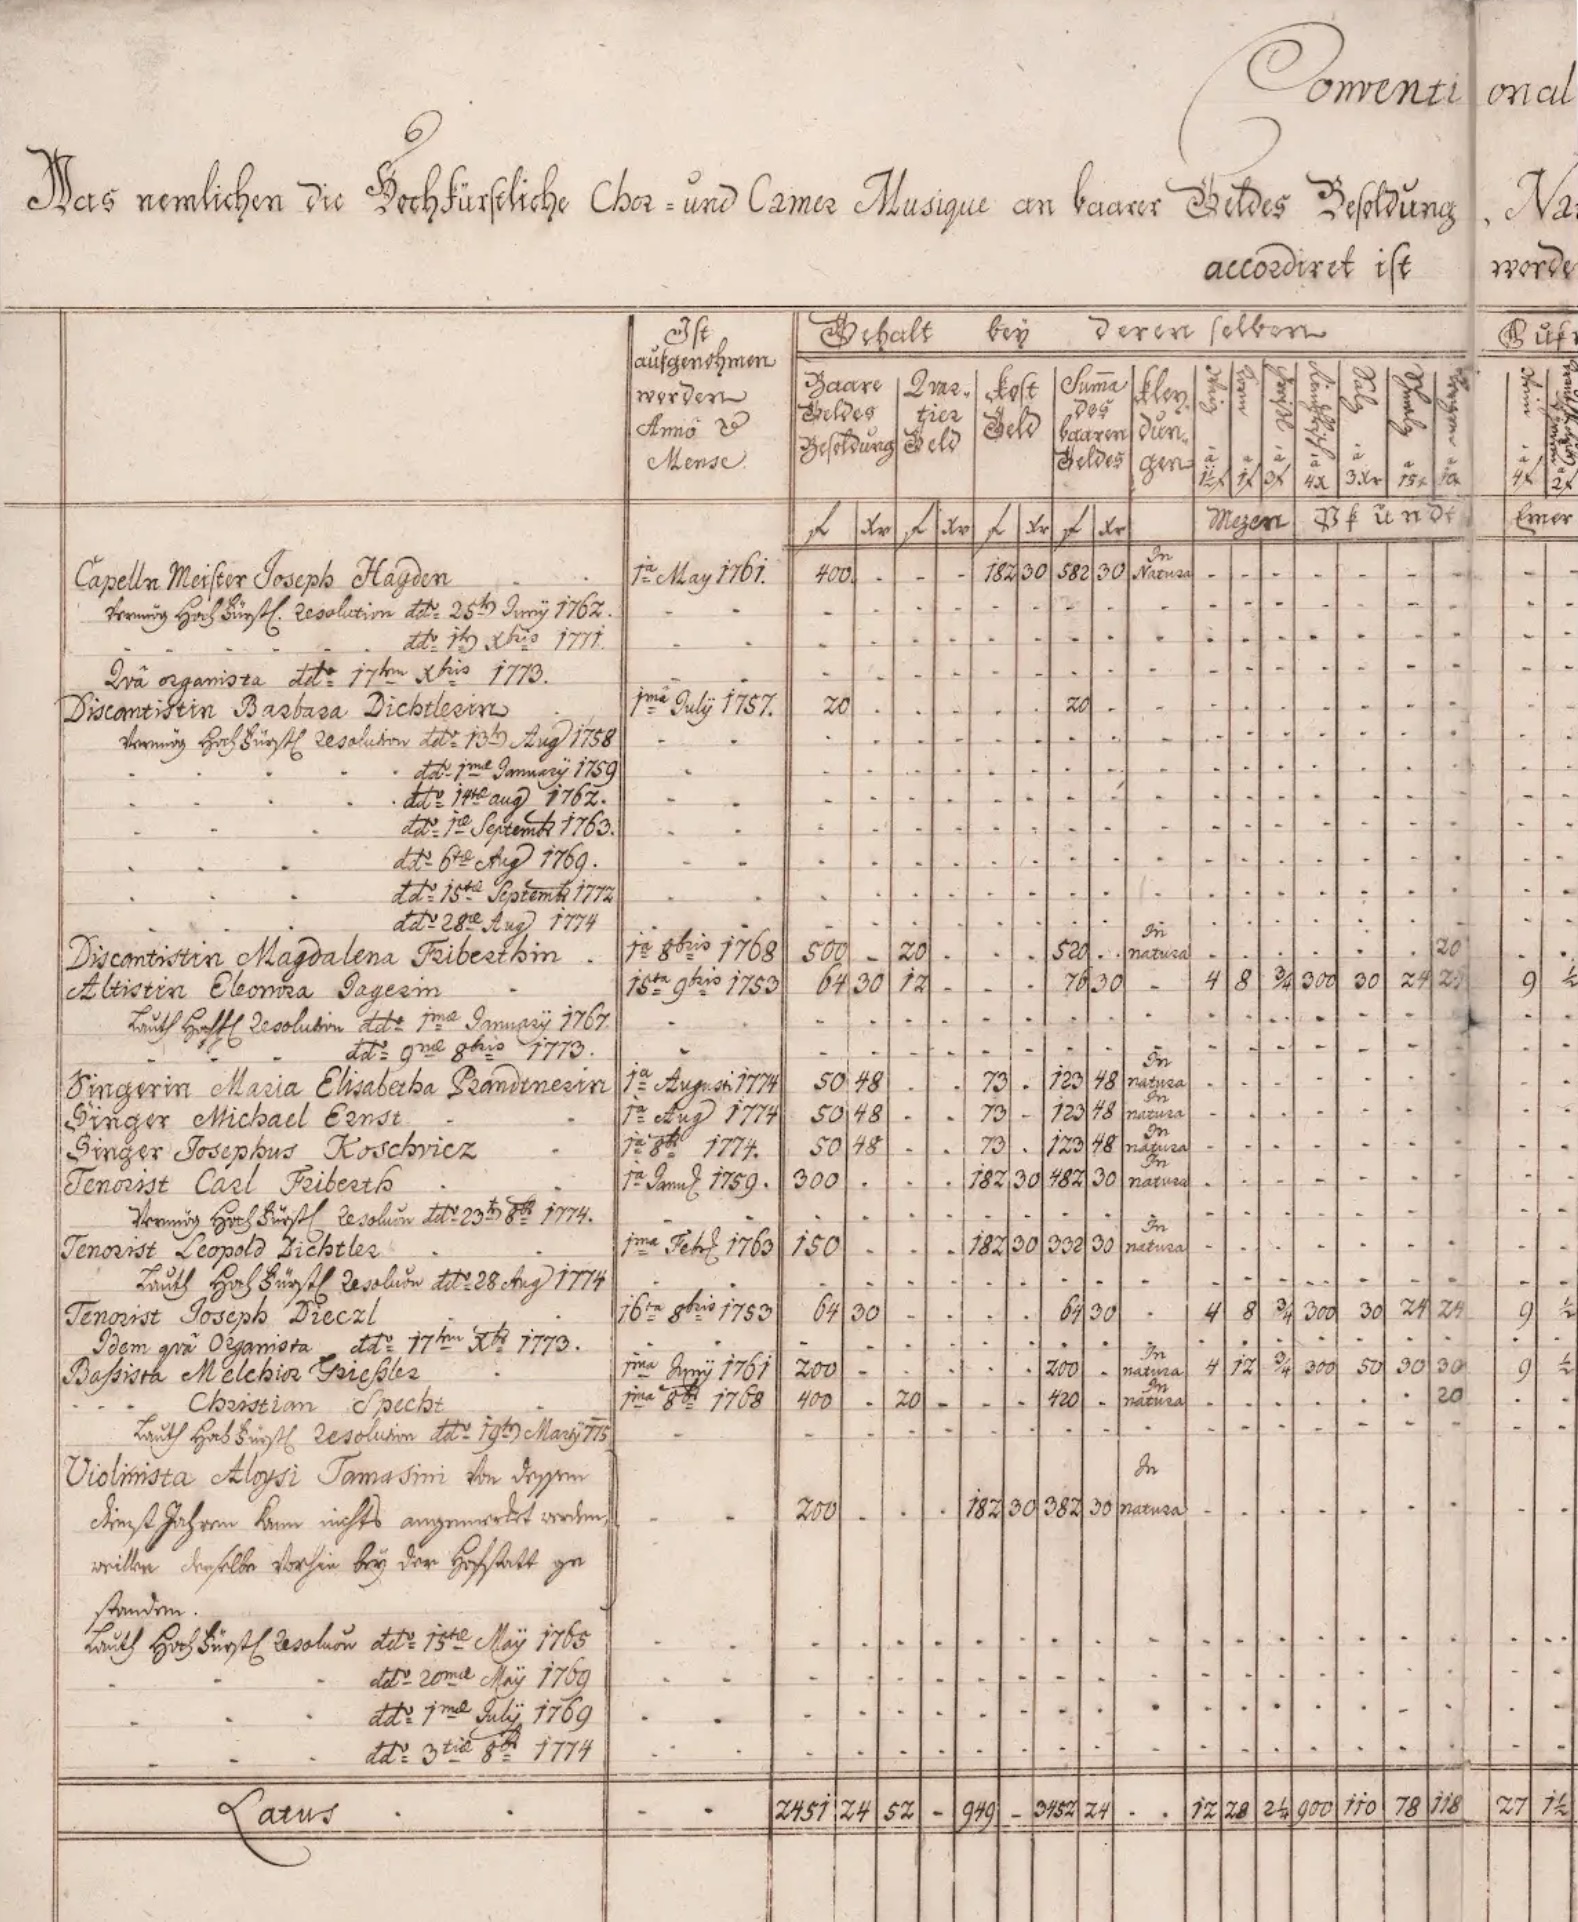 Conventional
Was nemlichen die Hochfürstliche Chor- und Camer Musique an baarer Geldes Besoldung, Na
accordiret ist worde
Ist aufgenohmen worden Anno & Mense
Gehalt bey deren selben
Baare Geldes Besoldung | Quartier Geld | Kost Geld | Summa des baaren Geldes | Kleydungen | à 1½ f | à 1 f | à 3 f | à 4 x | Salz à 3 xr | Schmalz à 15 x | à | Wein à 4 f | à 2 f
f | xr | f | xr | f | xr | f | xr | Mezen | Pfundt | Emer
Capelln Meister Joseph Hayden . . 1a May 1761. 400. - - - 182 30 582 30 In Natura - - - - - - - - -
Vermög Hochfürstl. Resolution ddo 25tn Juny 1762.
ddo 1tn Xbris 1771.
Quâ organista ddo 17ten Xbris 1773.
Discantistin Barbara Dichtlerin 1ma July 1757. 20 - - - - - 20 - -
Vermög Hochfürstl Resolution ddo 13tn Aug 1758
ddo 1mae January 1759
ddo 14tae aug 1762.
ddo 1ae Septembr 1763.
ddo 6tae Aug 1769.
ddo 15tae Septembr 1772
ddo 28ae Aug 1774
Discantistin Magdalena Friberthin . 1a 8bris 1768 500 - 20 - - - 520 . In natura . . . . . . 20 . .
Altistin Eleonora Jagerin - 15ta 9bris 1753 64 30 12 - - - 76 30 - 4 8 ¾ 300 30 24 24 9 ½
Lauth Hochfl Resolution ddo 1mae January 1767.
ddo 9nae 8bris 1773.
Singerin Maria Elisabetha Prandtnerin 1a Augusti 1774 50 48 . . 73 . 123 48 In natura
Singer Michael Ernst - - 1a Aug 1774 50 48 . . 73 - 123 48 In natura
Singer Josephus Koschvicz - 1a 8br 1774. 50 48 . . 73 . 123 48 In natura
Tenorist Carl Friberth . . 1a Janu 1759. 300 . . . 182 30 482 30 In natura
Vermög Hochfürstl Resoluôn ddo 23tn 8br 1774.
Tenorist Leopold Dichtler . . 1ma Feb 1763 150 . . . 182 30 332 30 In natura
Lauth Hochfürstl Resoluôn ddo 28 Aug 1774
Tenorist Joseph Dieczl . . 16ta 8bris 1753 64 30 . . . . 64 30 . 4 8 ¾ 300 30 24 24 9 ½
Idem quâ Organista ddo 17ten Xbr 1773.
Bassista Melchior Griessler . 1ma Juny 1761 200 - . . . . 200 . In natura 4 12 ¾ 300 50 30 30 9 ½
- - - Christian Specht - 1ma 8br 1768 400 . 20 - . . 420 . In natura . . . . . . 20 . .
Lauth Hochfürstl Resolution ddo 19tn Marty 775
Violinista Aloysi Tomasini von dessen
dienst Jahren kann nichts angemerket werden, - - 200 . . . 182 30 382 30 In natura
weillen derselbe vorhin bey der Hofstatt ge
standen.
Lauth Hochfürstl Resoluôn ddo 15tae May 1765
ddo 20mae May 1769
ddo 1mae July 1769
ddo 3tiae 8br 1774
Latus . . - . 2451 24 52 - 949 - 3452 24 . . 12 28 2¼ 900 110 78 118 27 1½